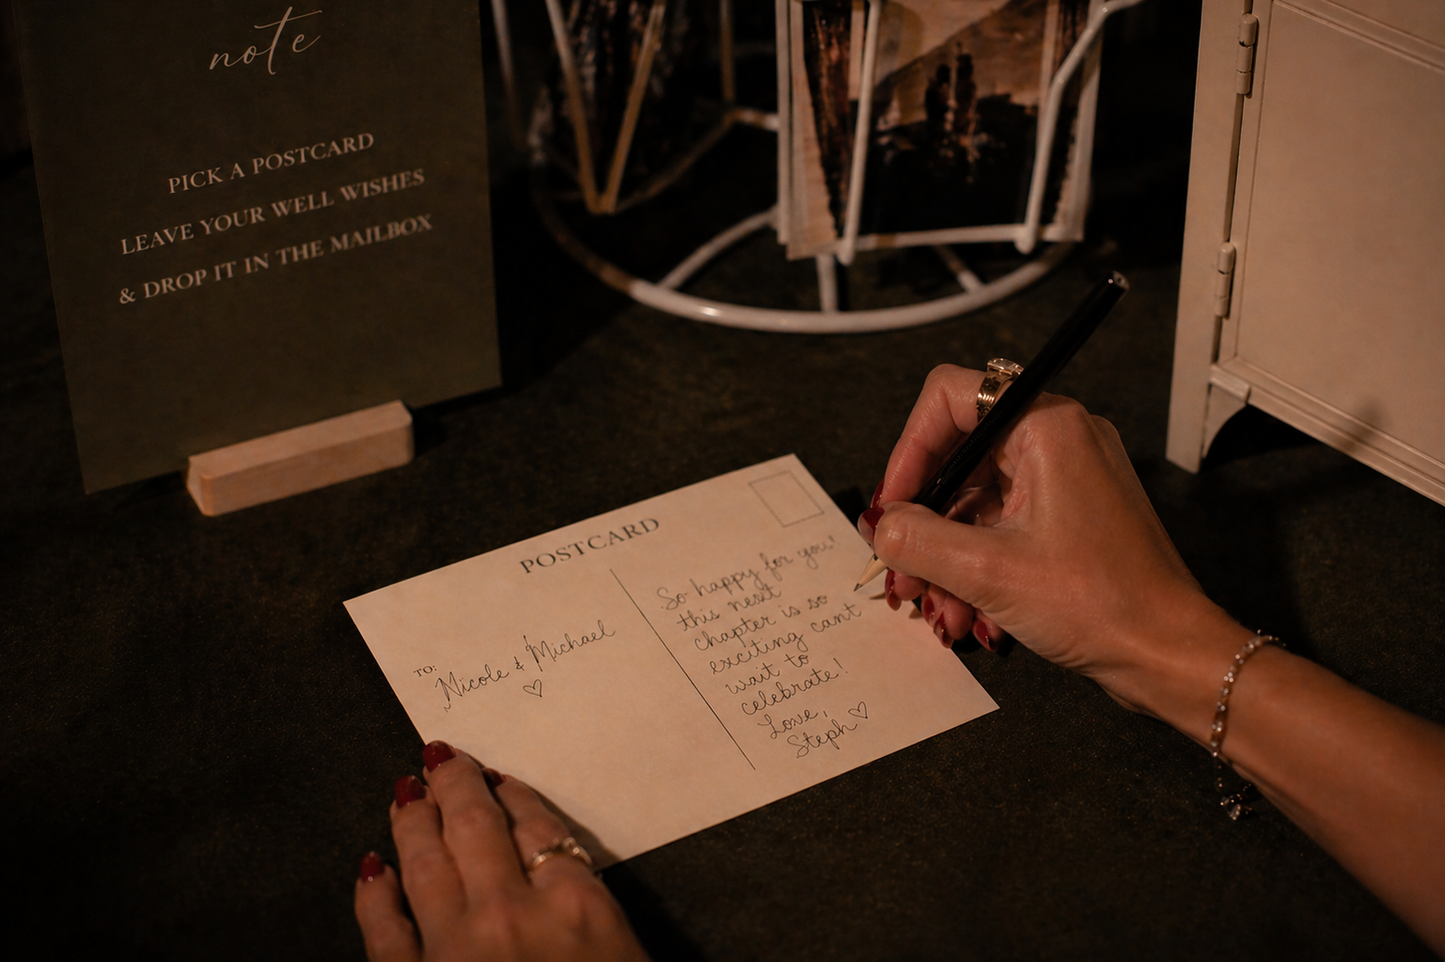 note
PICK A POSTCARD
LEAVE YOUR WELL WISHES
& DROP IT IN THE MAILBOX
POSTCARD
TO:
Nicole & Michael
♡
So happy for you!
this next
chapter is so
exciting cant
wait to
celebrate!
Love,
Steph ♡